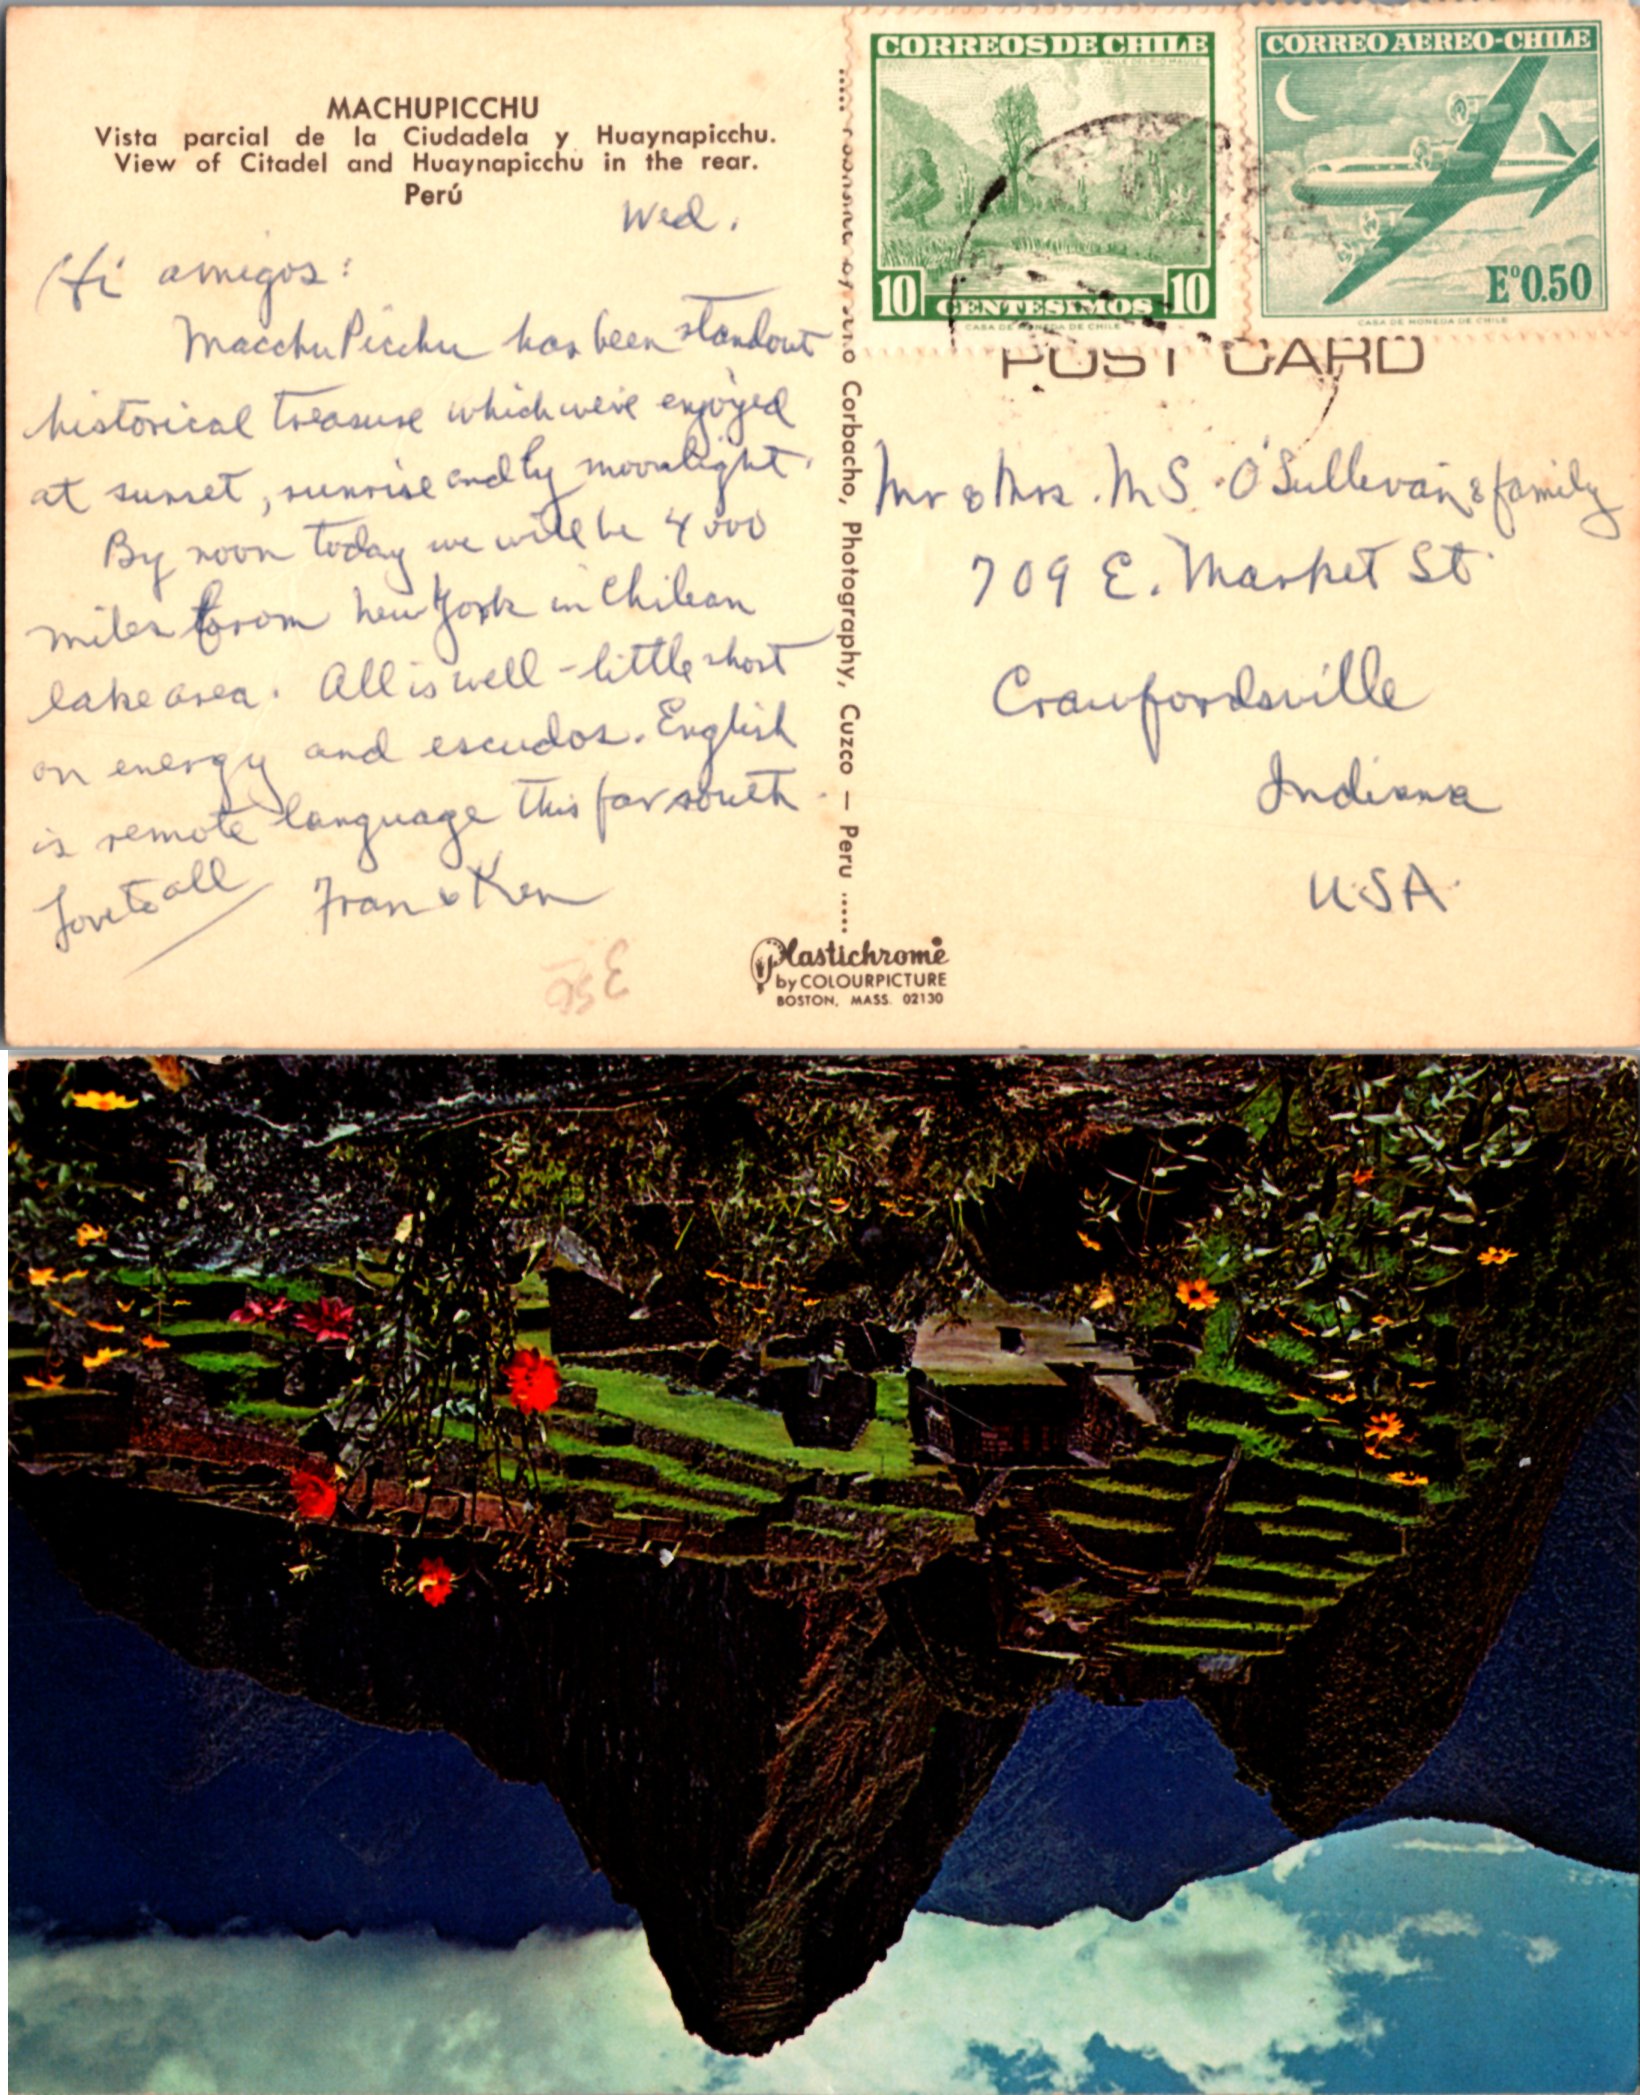 MACHUPICCHU
Vista parcial de la Ciudadela y Huaynapicchu.
View of Citadel and Huaynapicchu in the rear.
Perú
Wed.
Hi amigos:
Macchu Picchu has been standout
historical treasure which we've enjoyed
at sunset, sunrise and by moonlight.
By noon today we will be 4000
miles from New York in Chilean
lake area. All is well - little short
on energy and escudos. English
is remote language this far south.
Love to all Fran & Ken
by Corbacho, Photography, Cuzco — Peru .....
Plastichrome
by COLOURPICTURE
BOSTON, MASS. 02130
CORREOS DE CHILE
VALLE DEL RIO MAULE
10 CENTESIMOS 10
CASA DE MONEDA DE CHILE
CORREO AEREO-CHILE
Eº0.50
CASA DE MONEDA DE CHILE
POST CARD
Mr & Mrs. M S. O'Sullivan & family
709 E. Market St.
Crawfordsville
Indiana
USA.